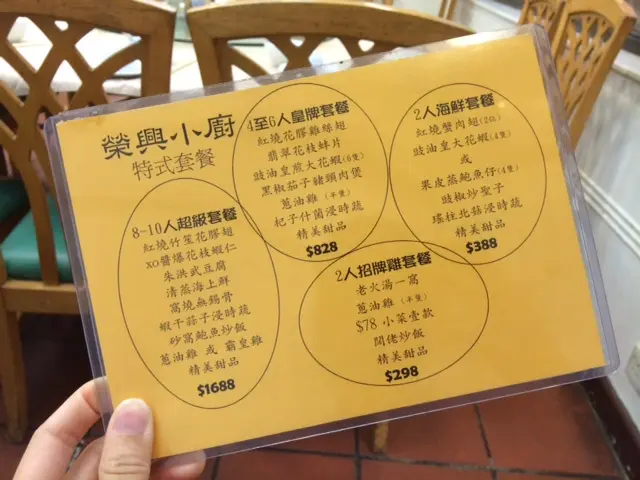 榮興小廚
特式套餐
4至6人皇牌套餐
紅燒花膠雞絲翅
翡翠花枝蚌片
豉油皇煎大花蝦(6隻)
黑椒茄子豬頸肉煲
蔥油雞 (半隻)
杞子什菌浸時蔬
精美甜品
$828
2人海鮮套餐
紅燒蟹肉翅(2位)
豉油皇大花蝦(4隻)
或
果皮蒸鮑魚仔(4隻)
豉椒炒聖子
瑤柱北菇浸時蔬
精美甜品
$388
8-10人超級套餐
紅燒竹笙花膠翅
XO醬爆花枝蝦仁
朱洪武豆腐
清蒸海上鮮
窩燒無錫骨
蝦干蒓子浸時蔬
砂窩鮑魚炒飯
蔥油雞 或 霸皇雞
精美甜品
$1688
2人招牌雞套餐
老火湯一窩
蔥油雞 (半隻)
$78 小菜壹款
闊佬炒飯
精美甜品
$298